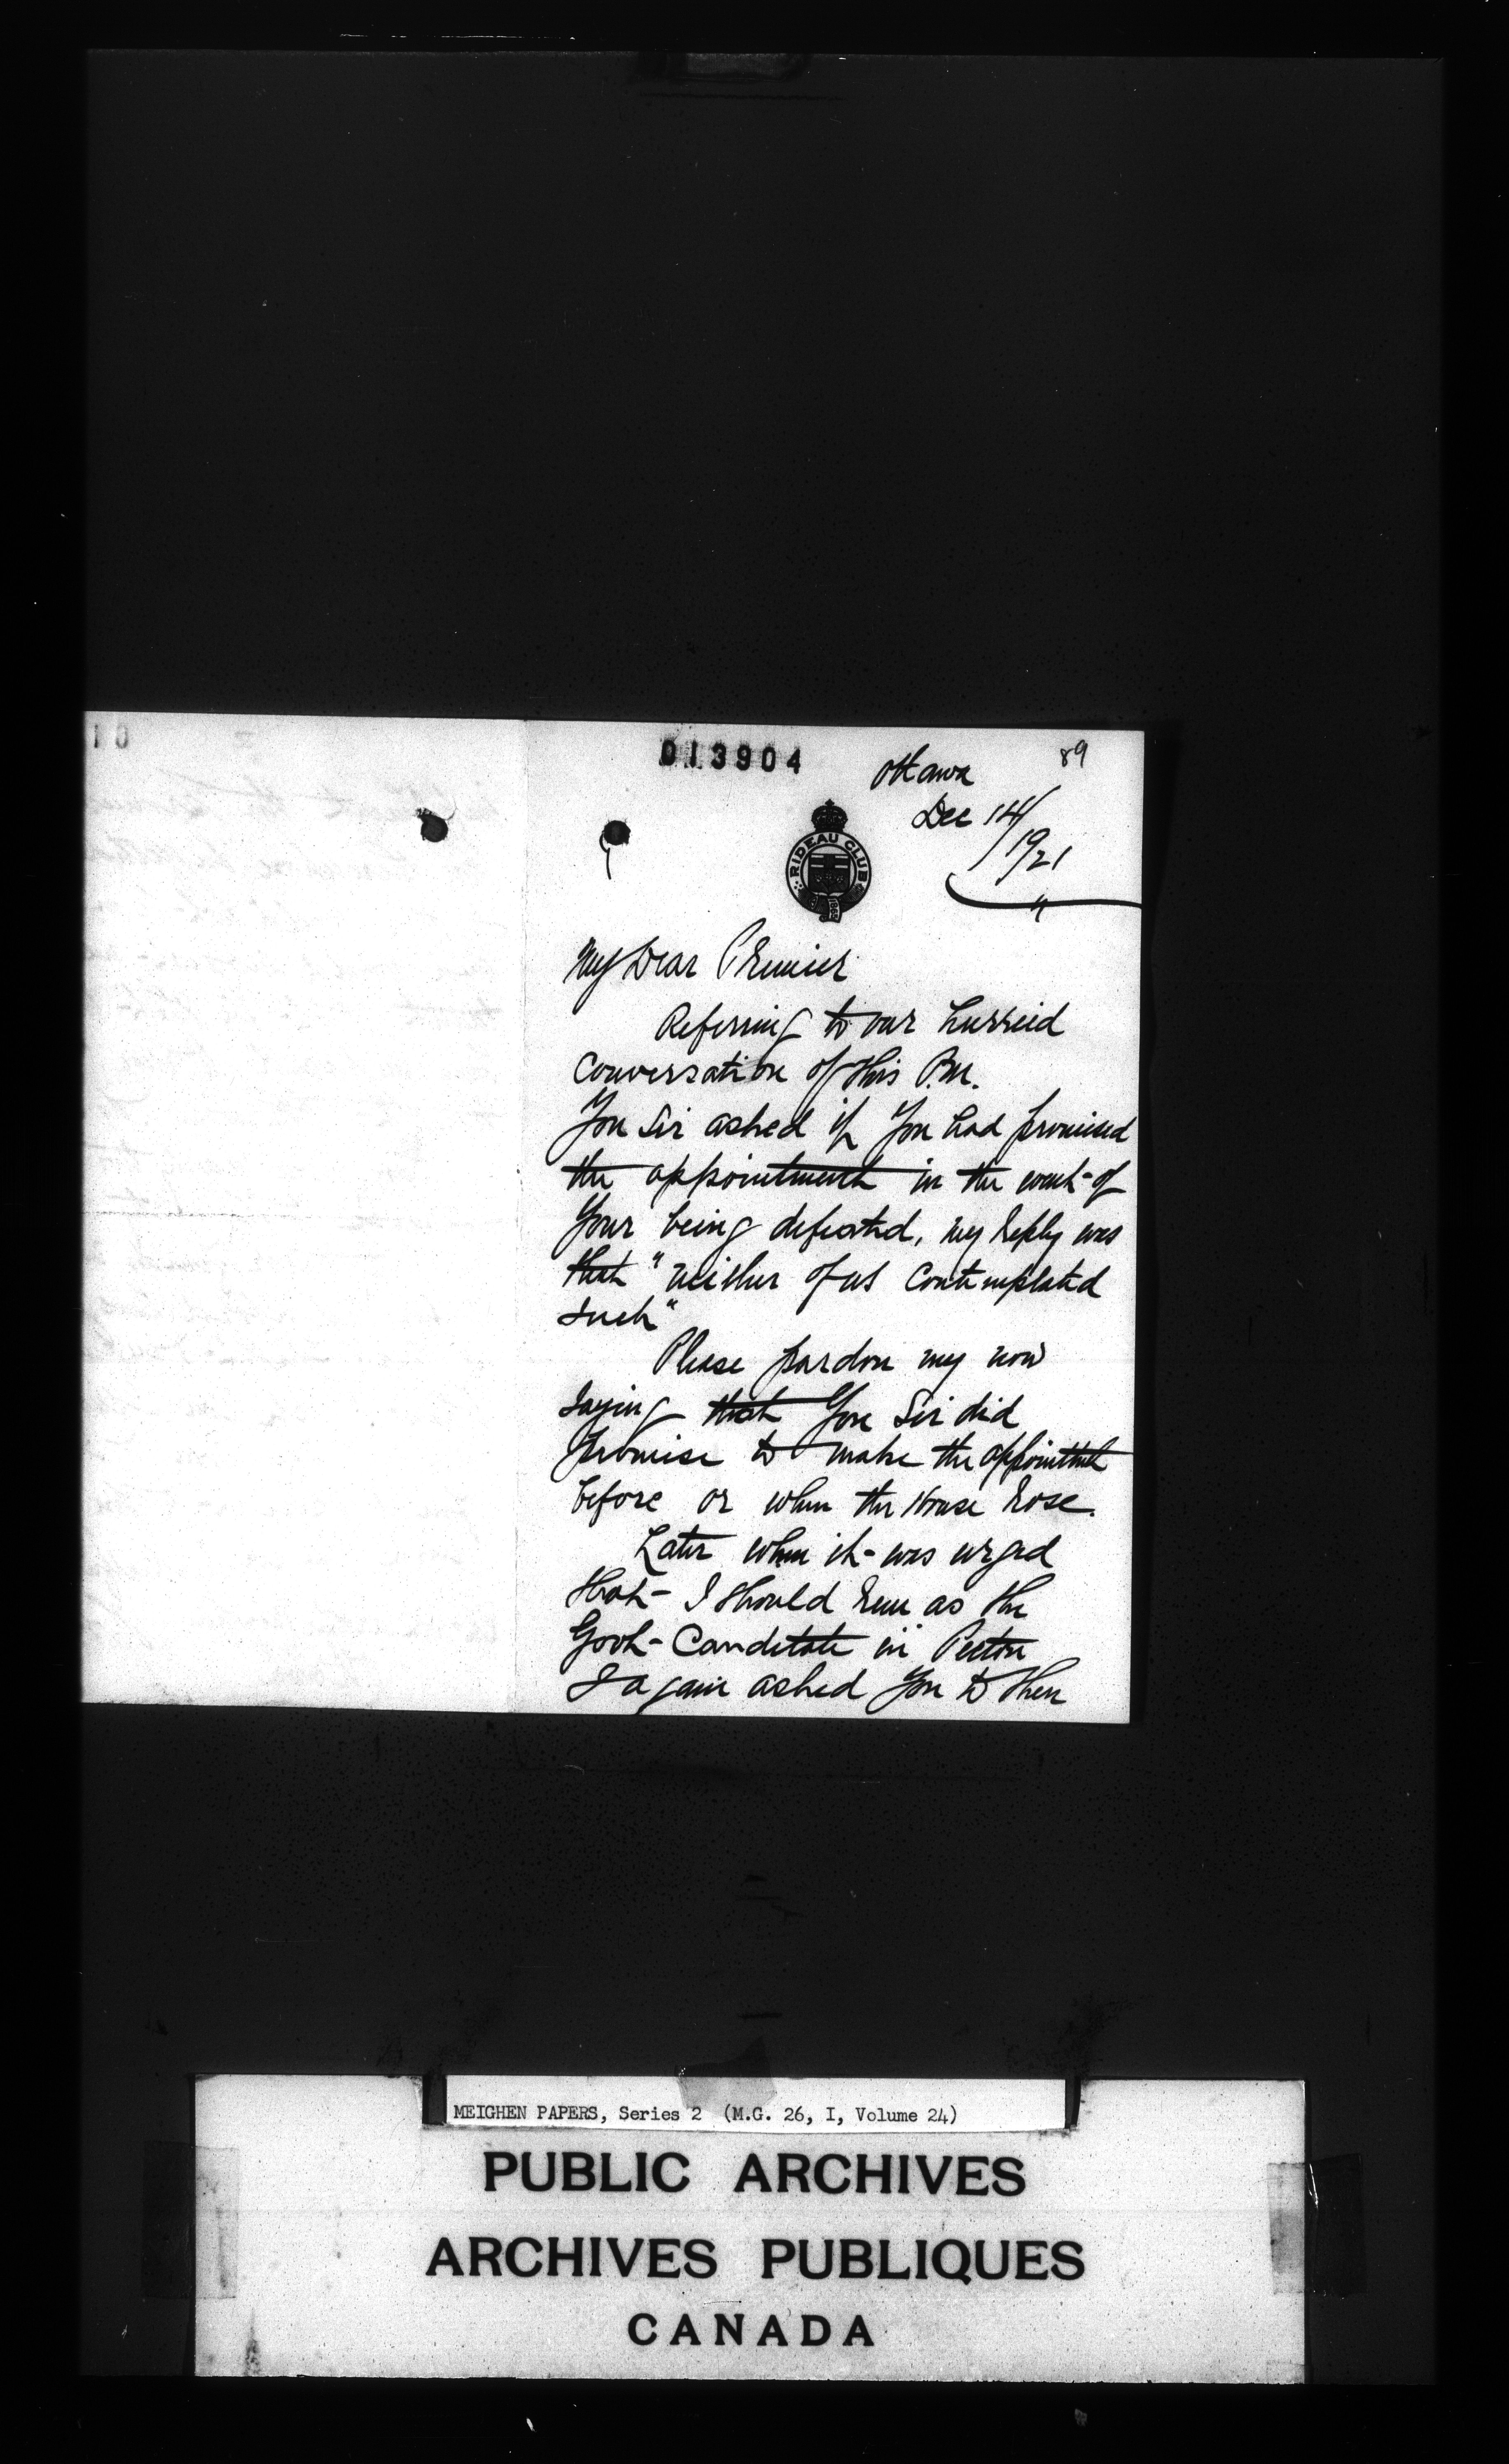 013904
89
Ottawa
Dec 14/
1921
"
RIDEAU CLUB
My Dear Premier
Referring to our hurried
Conversation of this P.M.
You Sir asked if You had promised
the appointment in the event of
Your being defeated, my reply was
that "neither of us Contemplated
such"
Please pardon my now
saying that You Sir did
promise to make the appointmt
before or when the House rose.
Later when it was urged
that I should run as the
Govt Canditate in Picton
I again asked You to then
MEIGHEN PAPERS, Series 2 (M.G. 26, I, Volume 24)
PUBLIC ARCHIVES
ARCHIVES PUBLIQUES
CANADA